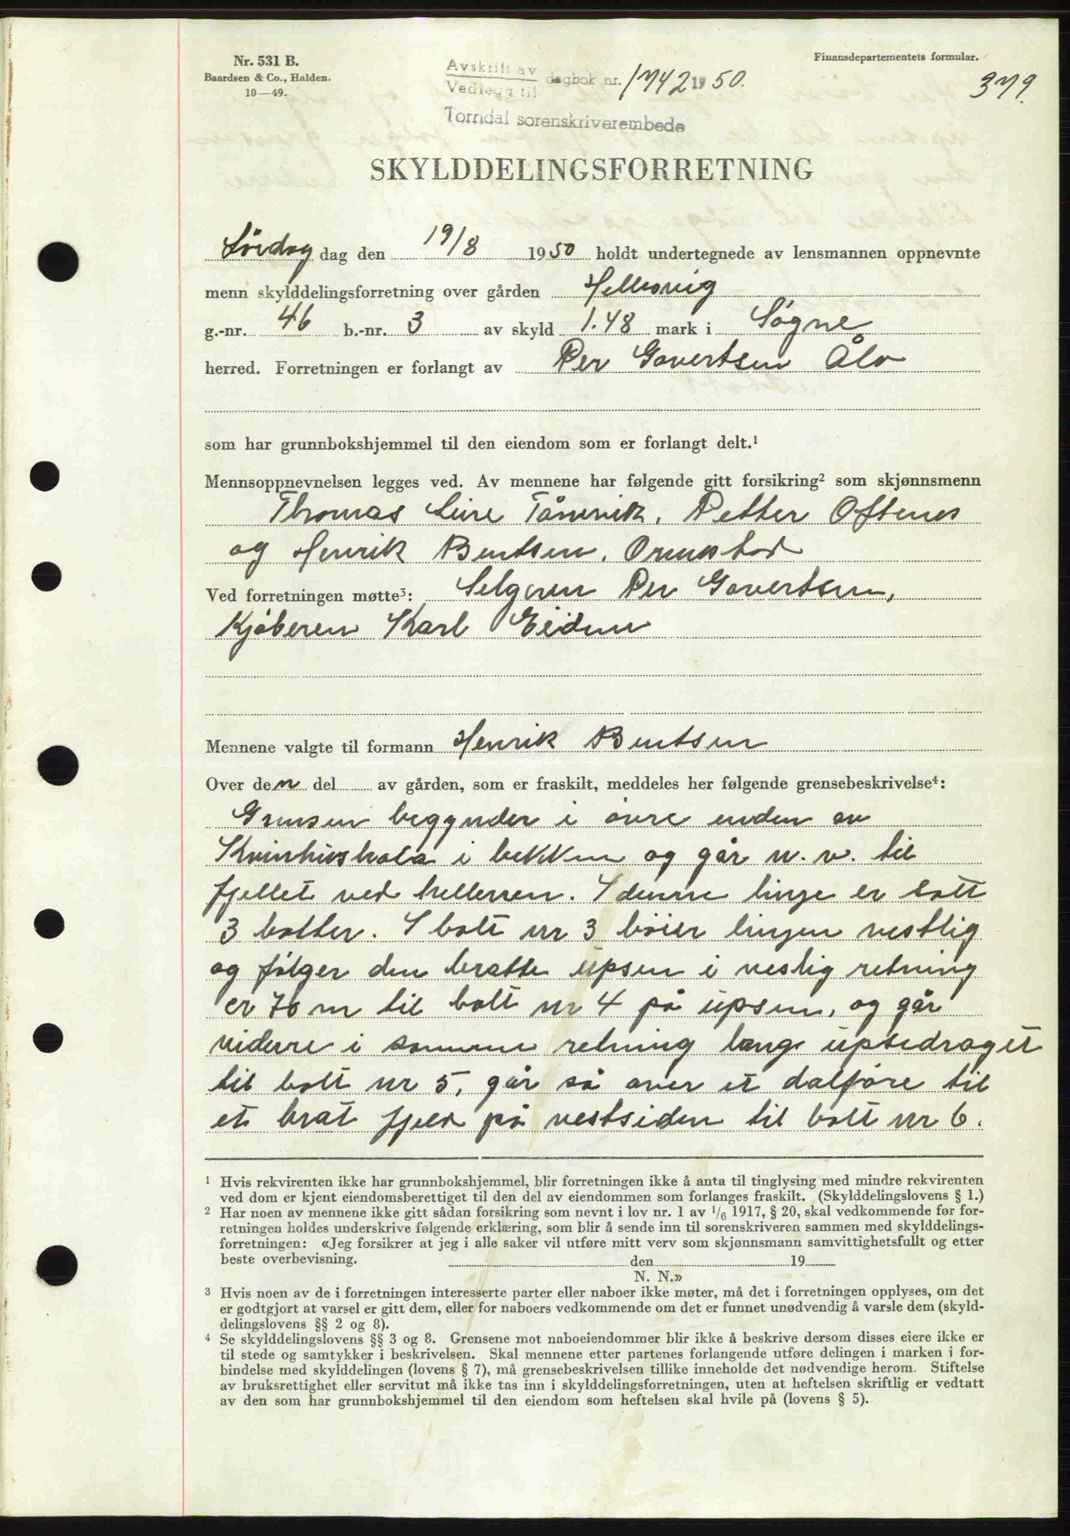 Nr. 531 B.
Baardsen & Co., Halden.
10—49.
Avskrift av
Vedlegg til dagbok nr. 1742 1950.
Torridal sorenskriverembede
Finansdepartementets formular.
379.
SKYLDDELINGSFORRETNING
Lördag dag den 19/8 1950 holdt undertegnede av lensmannen oppnevnte
menn skylddelingsforretning over gården Hellesvig
g.-nr. 46 b.-nr. 3 av skyld 1.48 mark i Søgne
herred. Forretningen er forlangt av Per Govertsen Ålo
som har grunnbokshjemmel til den eiendom som er forlangt delt.¹
Mennsoppnevnelsen legges ved. Av mennene har følgende gitt forsikring² som skjønnsmenn
Thomas Live Tånevik, Petter Oftenes
og Henrik Bentsen, Ormestad
Ved forretningen møtte³: Selgeren Per Govertsen,
Kjøberen Karl Eidem
Mennene valgte til formann Henrik Bentsen
Over den del av gården, som er fraskilt, meddeles her følgende grensebeskrivelse⁴:
Grensen begynder i øvre enden av
i bekken og går n. v. til
fjellet ved helleren. I denne linje er satt
3 bolter. I bolt nr 3 bøier linjen vestlig
og følger den bratte upsen i veslig retning
er 70 m til bolt nr 4 på upsen, og går
videre i samme retning langs upsedraget
til bolt nr 5, går så over et dalføre til
et brat fjeld på vestsiden til bolt nr 6.
¹ Hvis rekvirenten ikke har grunnbokshjemmel, blir forretningen ikke å anta til tinglysing med mindre rekvirenten
ved dom er kjent eiendomsberettiget til den del av eiendommen som forlanges fraskilt. (Skylddelingslovens § 1.)
² Har noen av mennene ikke gitt sådan forsikring som nevnt i lov nr. 1 av 1/6 1917, § 20, skal vedkommende før for-
retningen holdes underskrive følgende erklæring, som blir å sende inn til sorenskriveren sammen med skylddelings-
forretningen: «Jeg forsikrer at jeg i alle saker vil utføre mitt verv som skjønnsmann samvittighetsfullt og etter
beste overbevisning. den 19
N. N.»
³ Hvis noen av de i forretningen interesserte parter eller naboer ikke møter, må det i forretningen opplyses, om det
er godtgjort at varsel er gitt dem, eller for naboers vedkommende om det er funnet unødvendig å varsle dem (skyld-
delingslovens §§ 2 og 8).
⁴ Se skylddelingslovens §§ 3 og 8. Grensene mot naboeiendommer blir ikke å beskrive dersom disses eiere ikke er
til stede og samtykker i beskrivelsen. Skal mennene etter partenes forlangende utføre delingen i marken i for-
bindelse med skylddelingen (lovens § 7), må grensebeskrivelsen tillike inneholde det nødvendige herom. Stiftelse
av bruksrettighet eller servitut må ikke tas inn i skylddelingsforretningen, uten at heftelsen skriftlig er vedtatt
av den som har grunnbokshjemmel til den eiendom som heftelsen skal hvile på (lovens § 5).